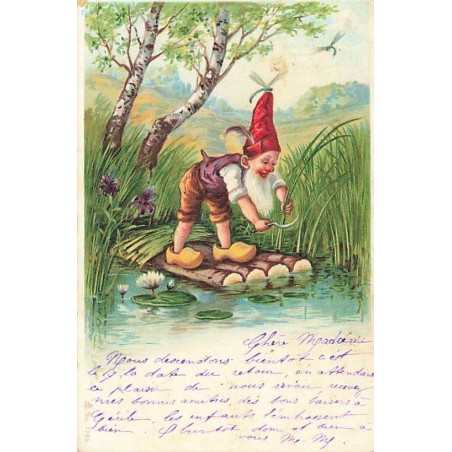 Chère Madame
Nous descendons bientôt c'est
le 9 la date du retour, en attendant
le plaisir de nous revoir, recevez
mes bonnes amitiés, des bons baisers à
Cécile, les enfants l'embrassent
bien. A bientôt donc et bien à
vous M. My